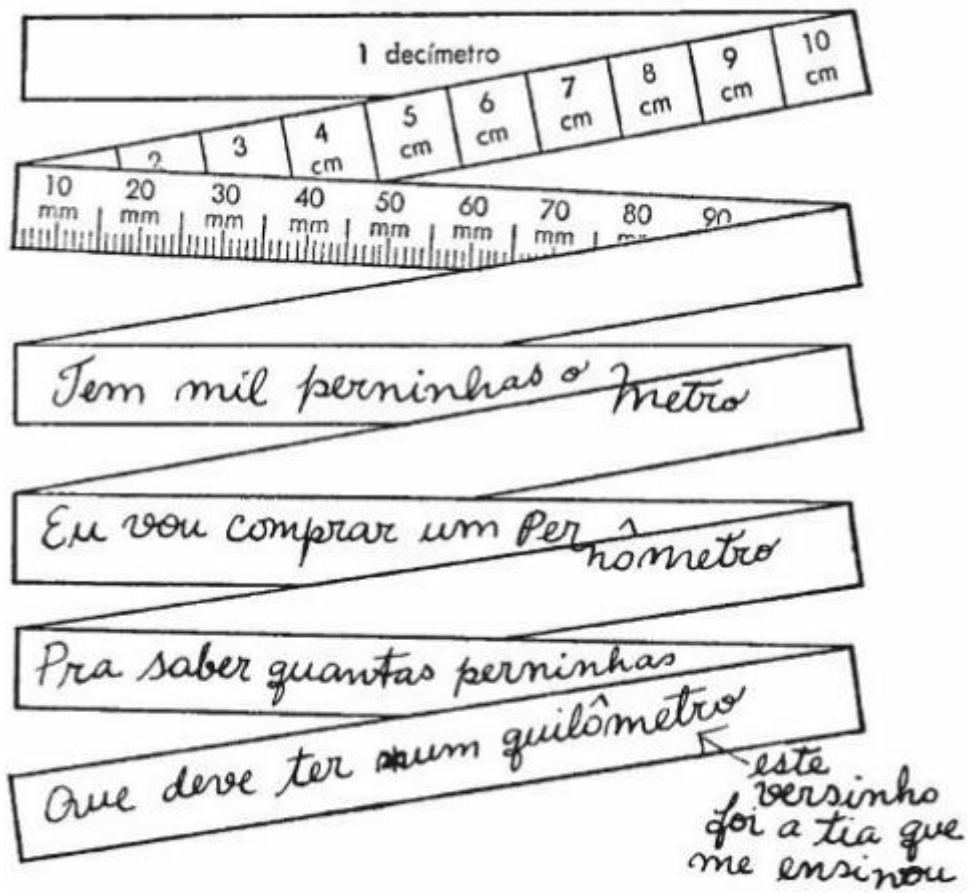 1 decímetro
2 3 4 cm 5 cm 6 cm 7 cm 8 cm 9 cm 10 cm
10 mm 20 mm 30 mm 40 mm 50 mm 60 mm 70 mm 80 mm 90
Tem mil perninhas o metro
Eu vou comprar um Per nômetro
Pra saber quantas perninhas
Que deve ter num quilômetro
este
versinho
foi a tia que
me ensinou